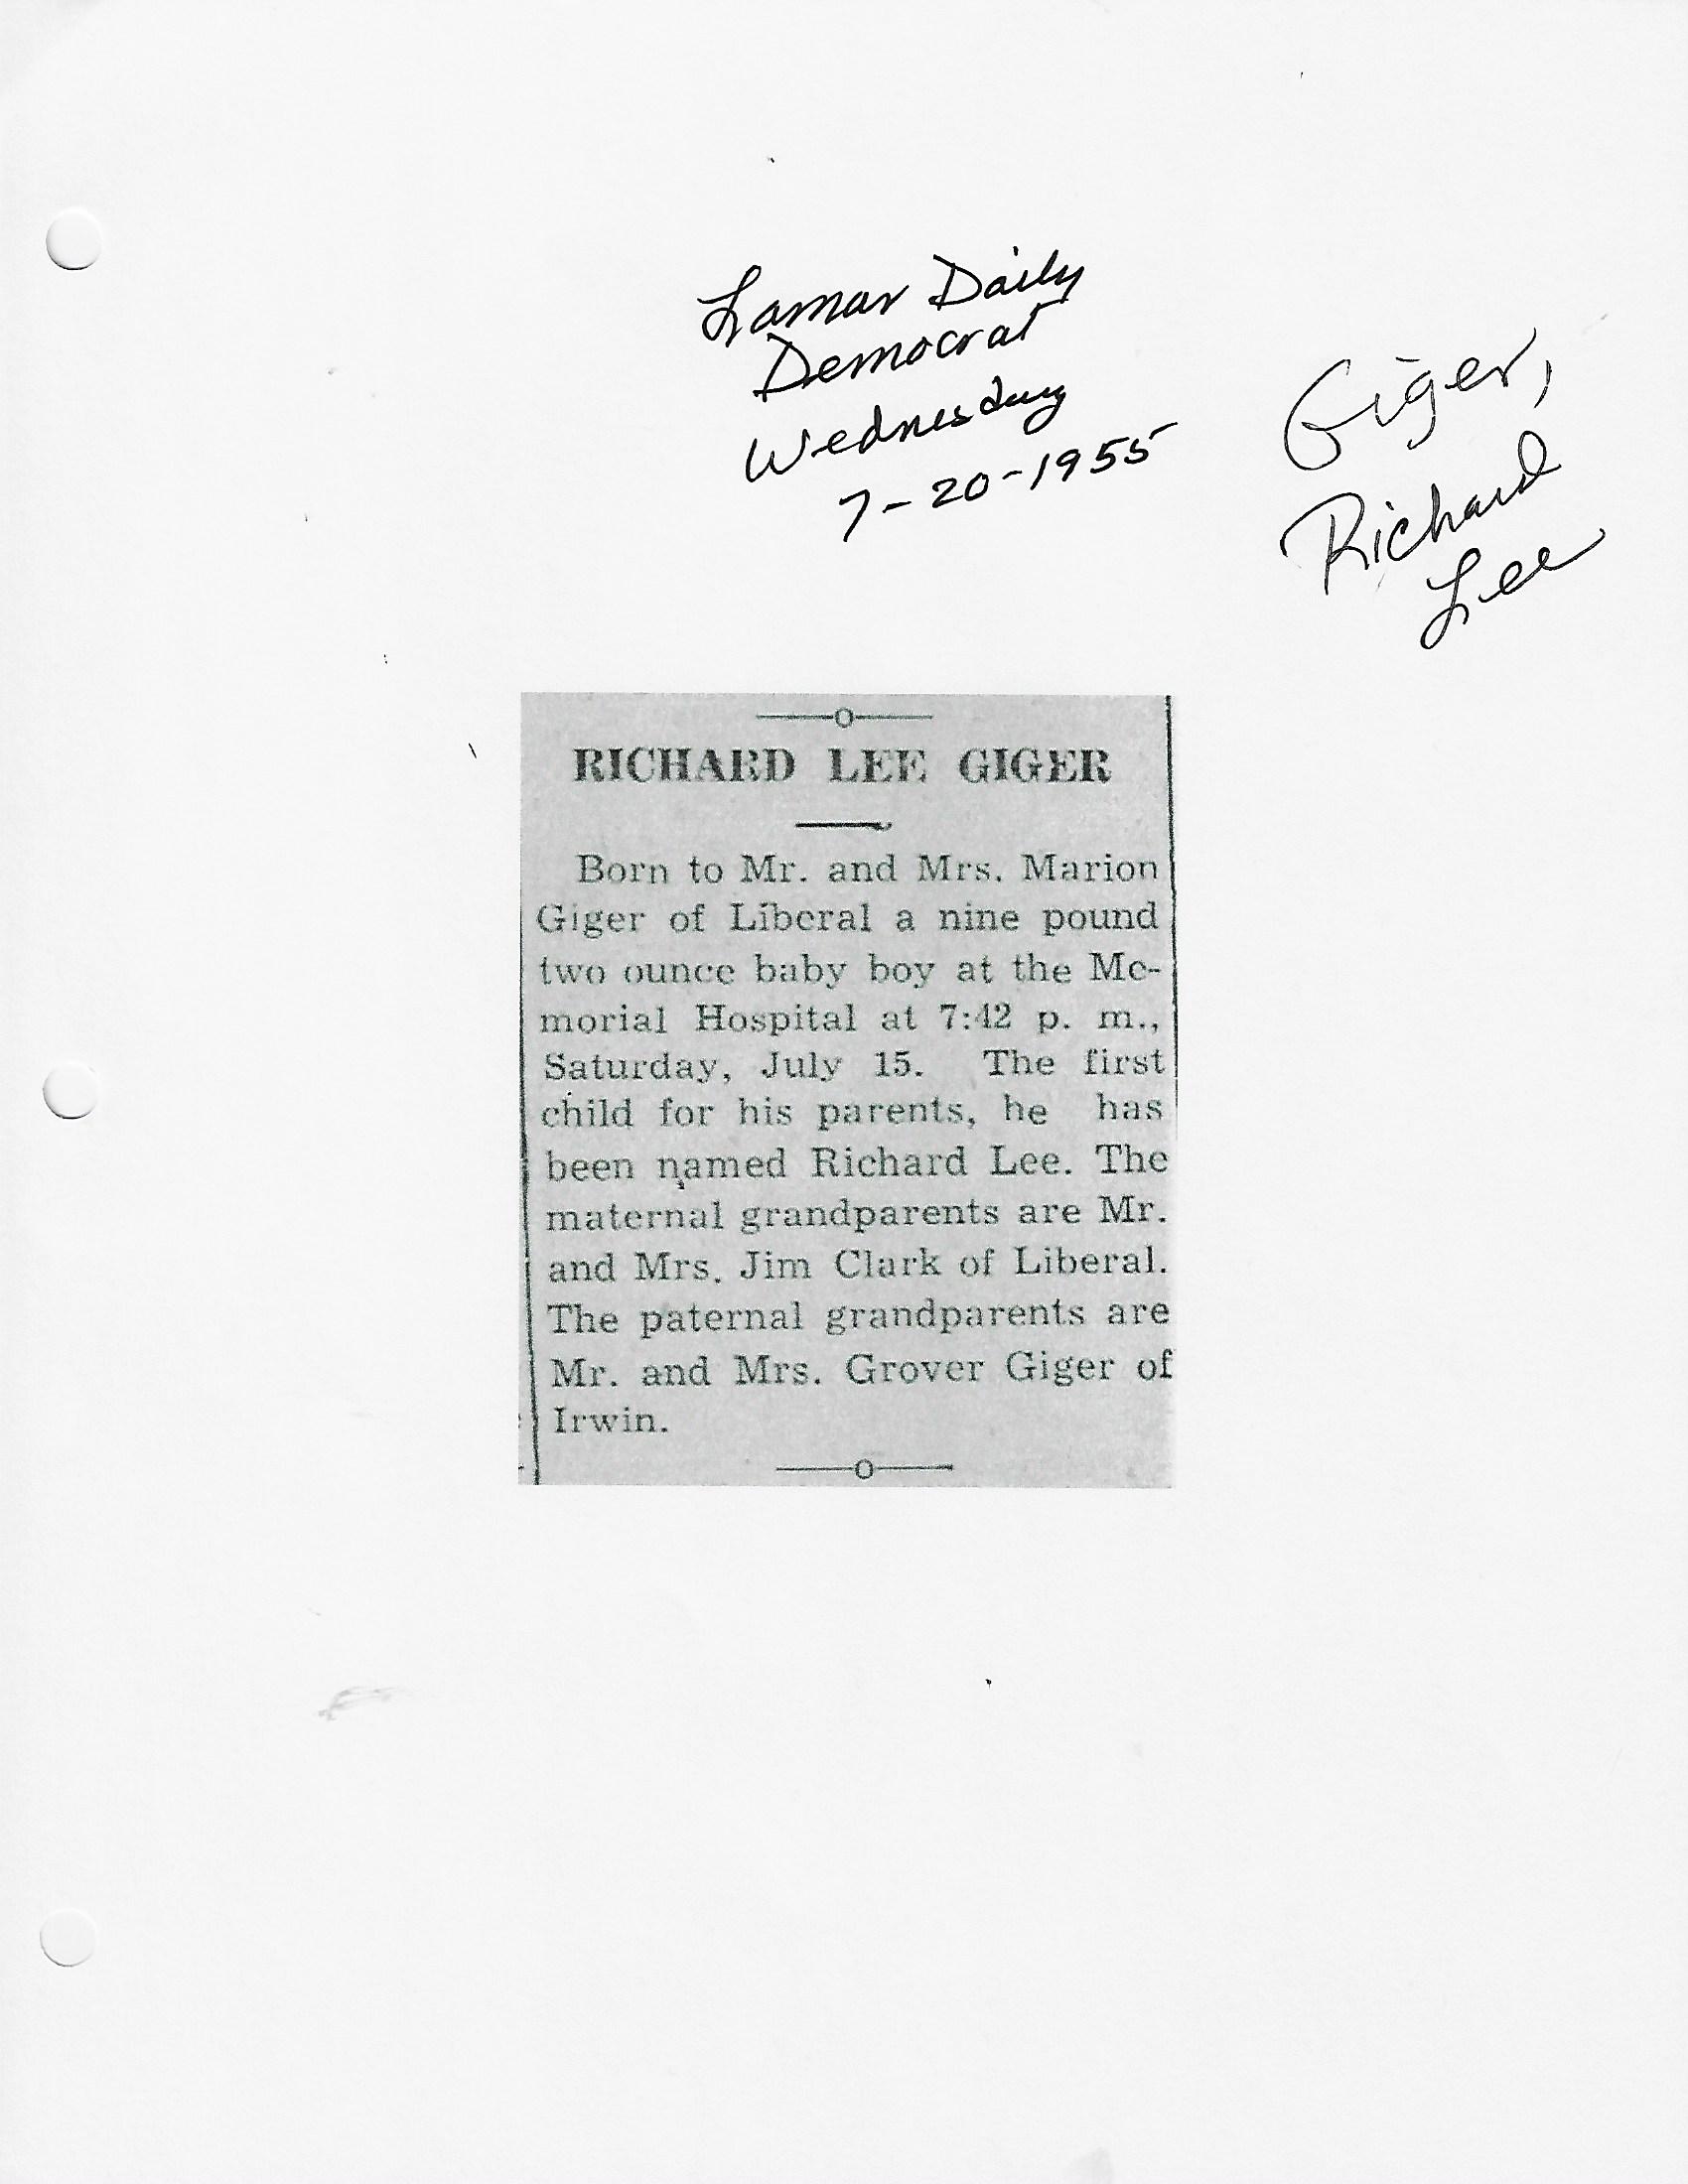 Lamar Daily
Democrat
Wednesday
7-20-1955
Giger,
Richard
Lee
RICHARD LEE GIGER
Born to Mr. and Mrs. Marion
Giger of Liberal a nine pound
two ounce baby boy at the Me-
morial Hospital at 7:42 p. m.,
Saturday, July 15. The first
child for his parents, he has
been named Richard Lee. The
maternal grandparents are Mr.
and Mrs. Jim Clark of Liberal.
The paternal grandparents are
Mr. and Mrs. Grover Giger of
Irwin.